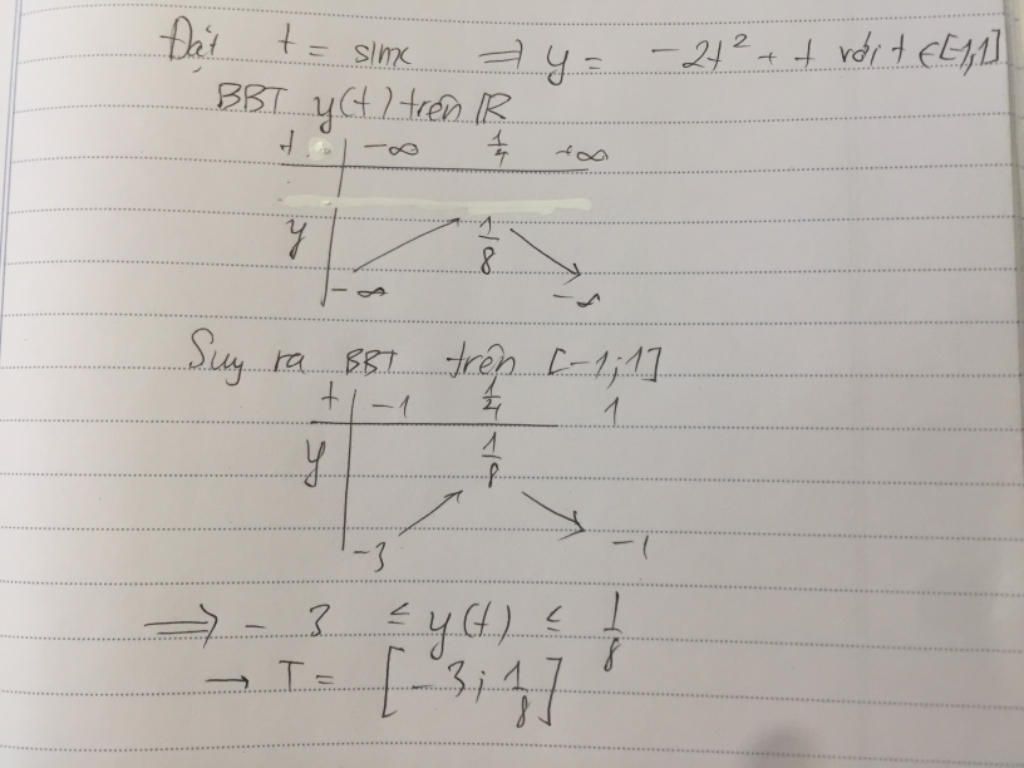 Đặt t = sinx ⟹ y = -2t² + t với t ∈ [-1,1]
BBT y(t) trên ℝ
t -∞ 1/4 +∞
y 1/8
-∞ -∞
Suy ra BBT trên [-1;1]
t -1 1/4 1
y 1/8
-3 -1
⟹ -3 ≤ y(t) ≤ 1/8
→ T = [-3; 1/8]